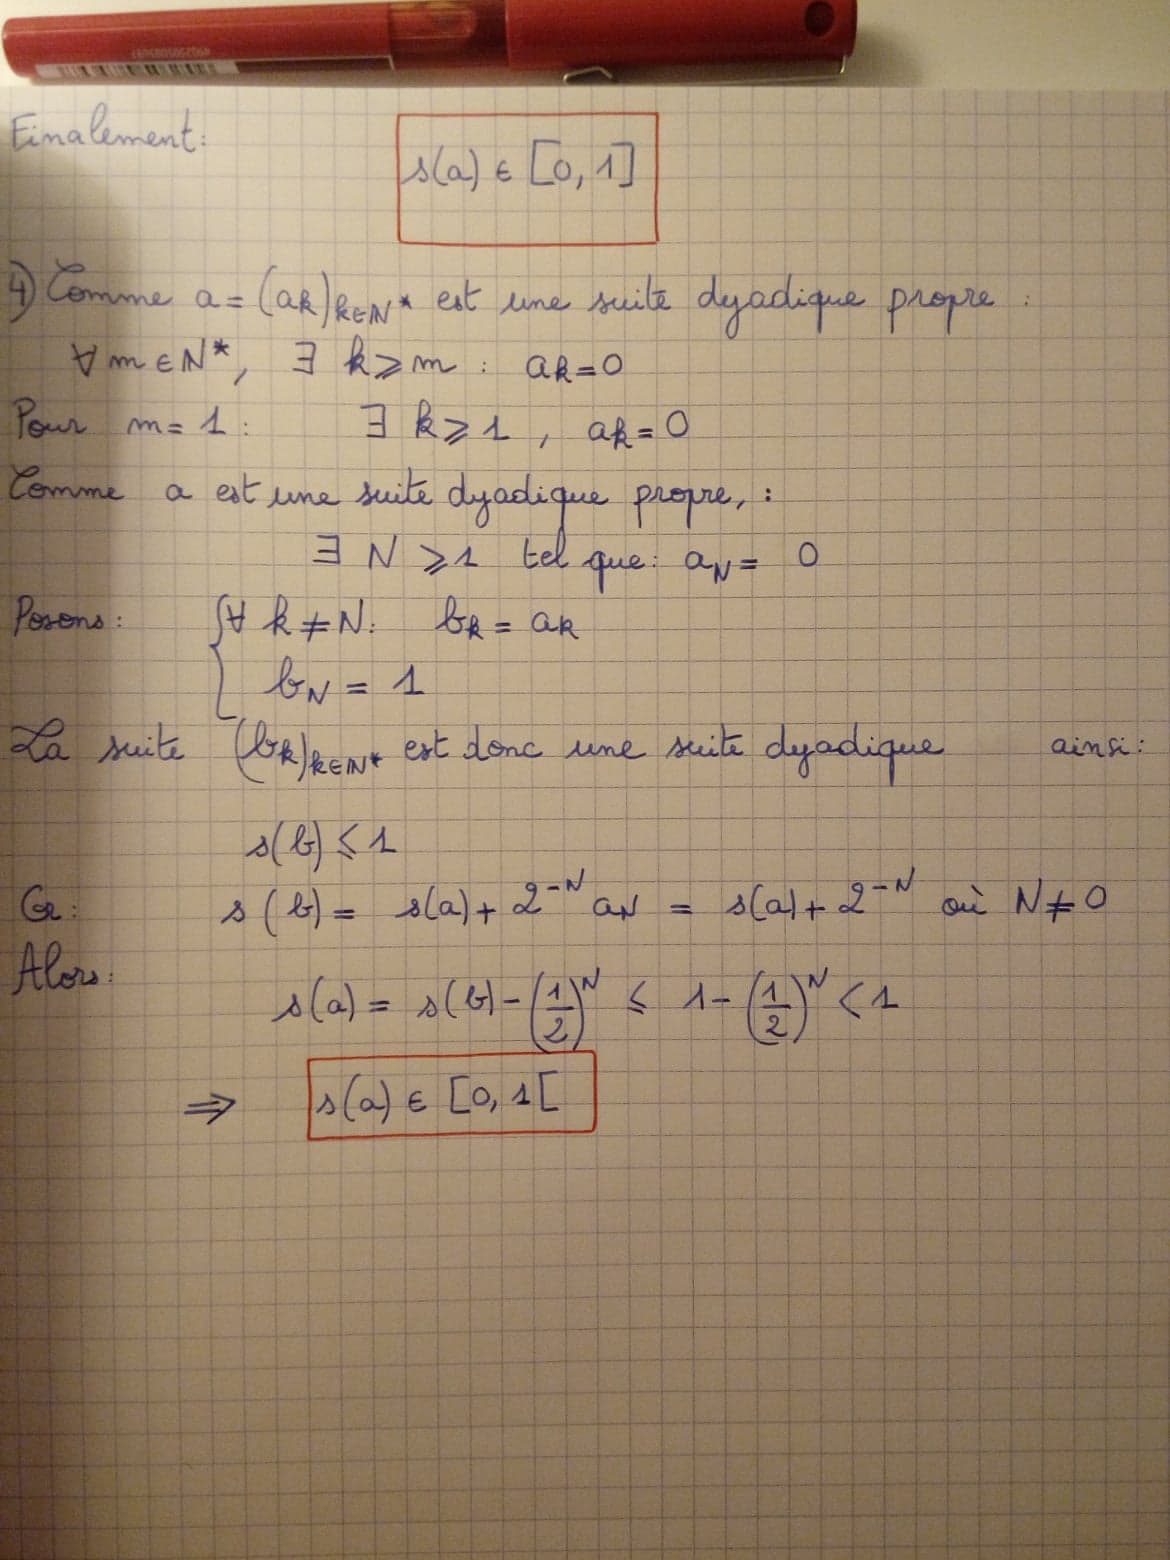 Finalement:
s(a) ∈ [0, 1]
4) Comme a = (ak)k∈N* est une suite dyadique propre :
∀ m ∈ N*, ∃ k ⩾ m : ak = 0
Pour m = 1 : ∃ k ⩾ 1 , ak = 0
Comme a est une suite dyadique propre, :
∃ N ⩾ 1 tel que : aN = 0
Posons : { ∀ k ≠ N : bk = ak
bN = 1
La suite (bk)k∈N* est donc une suite dyadique ainsi :
s(b) ⩽ 1
Or : s(b) = s(a) + 2^-N aN = s(a) + 2^-N où N ≠ 0
Alors :
s(a) = s(b) - (1/2)^N ⩽ 1 - (1/2)^N < 1
⇒ s(a) ∈ [0, 1[